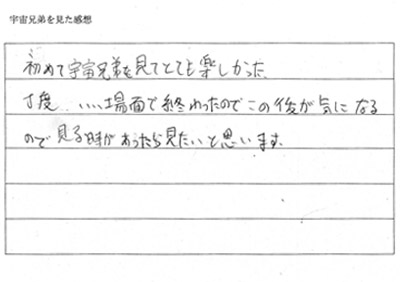 宇宙兄弟を見た感想
初めて宇宙兄弟を見てとても楽しかった。
丁度、いい場面で終わったのでこの後が気になる
ので見る時があったら見たいと思います。